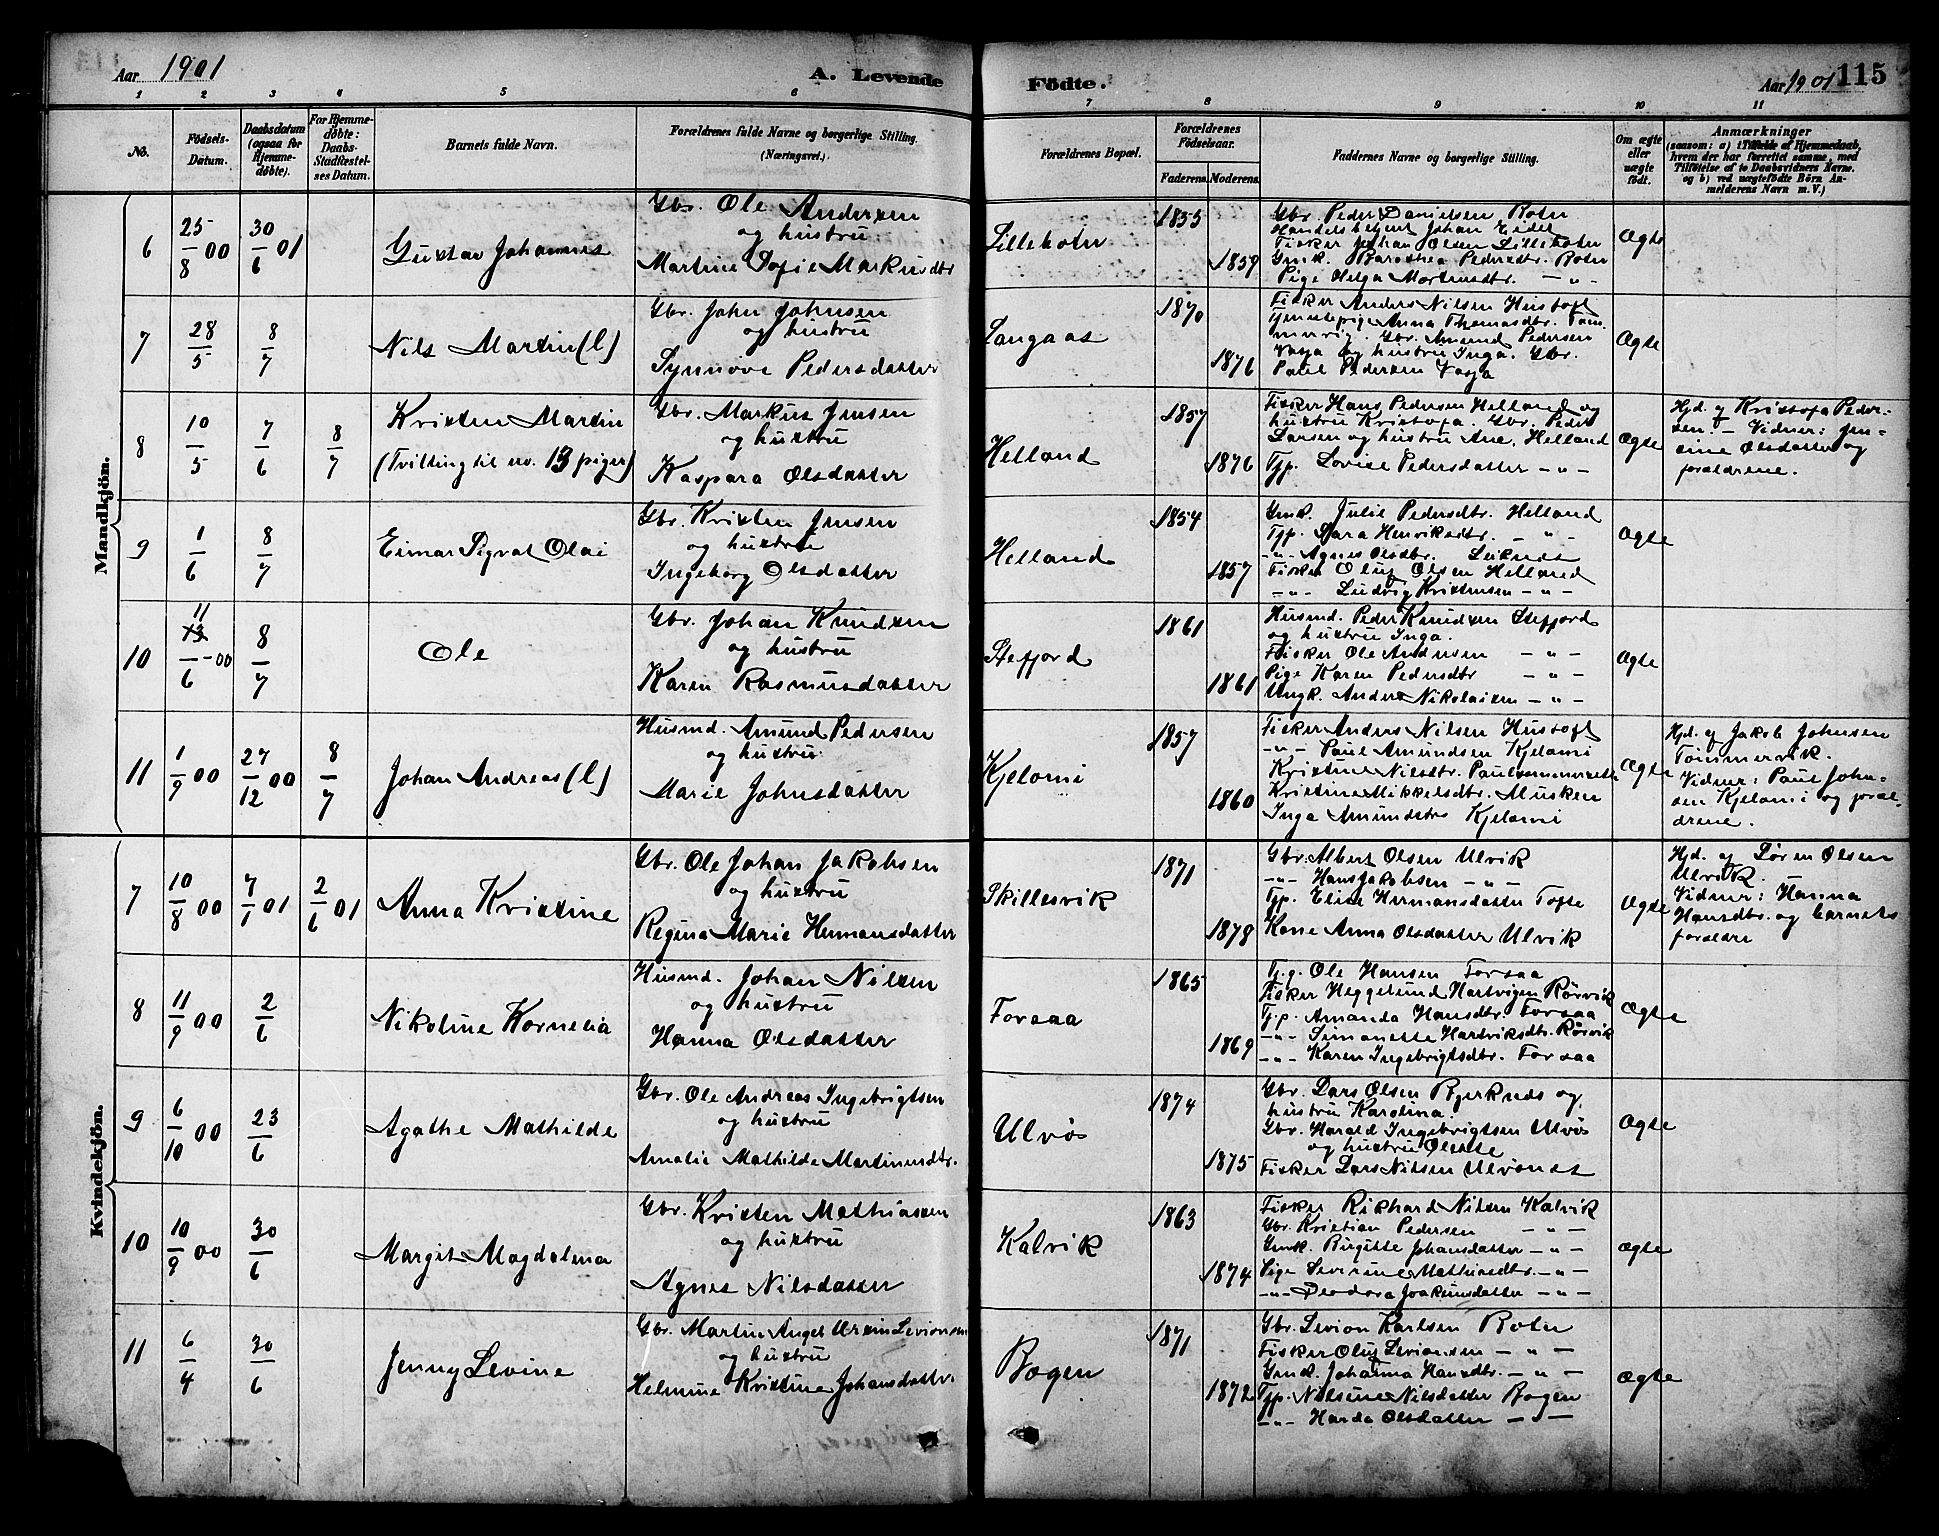 Aar 1901
A. Levende Födte.
Aar 1901 115
1 2 3 4 5 6 7 8 9 10 11
No.
Födsels-Datum.
Daabsdatum (ogsaa for Hjemmedøbte).
For Hjemmedøbte: Daabs-Stadfæstelses Datum.
Barnets fulde Navn.
Forældrenes fulde Navne og borgerlige Stilling. (Næringsvei.)
Forældrenes Bopæl.
Forældrenes Födselsaar.
Faderens. Moderens.
Faddernes Navne og borgerlige Stilling.
Om ægte eller uægte födt.
Anmærkninger
(saasom: a) i Tilfælde af Hjemmedaab, hvem der har forrettet samme, med Tilföielse af to Daabsvidners Navne, og b) ved uægtefödte Börn Anmelderens Navn m. V.)
Mandkjön.
6 25/8 00 30/6 01 Gustav Johannes
Gbr. Ole Andersen
og hustru
Martine Sofie Markusdtr
Lillebotn 1855 1859
Gbr. Peder Danielsen Botn
Handelsbetjent Johan Eidet
Fisker Johan Olsen Lillebotn
Gmk. Barothea Pedersdtr. Botn
Pige Helga Mortensdtr. - " -
Ægte
7 28/5 8/7 Nils Martin (l)
Gbr. John Johnsen
og hustru
Synnöve Pedersdatter
Langaas 1870 1876
Fisker Anders Nilsen Hustoft
Tjenestepige Anna Thomasdtr. Tömmervig. Gbr. Amund Pedersen
Vasja og hustru Inga. Gbr.
Paul Pedersen Vasja
Ægte
8 10/5 7/6 8/7 Kristen Martin
(Tvilling til no. 13 piger)
Gbr. Markus Jensen
og hustru
Kaspara Olsdatter
Helland 1857 1876
Fisker Hans Pedersen Helland og
hustru Kristofa. Gbr. Peder
Larsen og hustru Ane, Helland
Tjp. Lovise Pedersdatter - " -
Ægte
Hjd. af Kristofa Pedersen. - Vidner: Jensine Olsdatter og
forældrene.
9 1/6 8/7 Einar Sigvat Olai
Gbr. Kristen Jensen
og hustru
Ingeborg Olsdatter
Helland 1854 1857
Gmk. Julie Pedersdtr. Helland
Tjp. Sara Henriksdtr. - " -
- " - Agnes Olsdtr.
Fisker Oluf Olsen Helland
- " - Ludvig Kristensen - " -
Ægte
10 11/6 - 00 8/7 Ole
Gbr. Johan Knudsen
og hustru
Karen Rasmusdatter
Stefjord 1861 1861
Husmd. Peder Knudsen Stefjord
og hustru Inga.
Fisker Ole Andersen - " -
Pige Karen Pedersdtr - " -
Ungk. Anders Nikolaisen - " -
Ægte
11 1/9 00 27/12 00 8/7 Johan Andreas (l)
Husmd. Amund Pedersen
og hustru
Marie Johnsdatter
Kjelomi 1857 1860
Fisker Anders Nilsen Hustoft
- " - Paul Amundsen Kjelomi
Kristine Nilsdtr.
Kristine Mikkelsdtr. Musken
Inga Amundsdtr Kjelomi
Ægte
Hjd. af Jakob Johnsen
Tömmervik.
Vidner: Paul Johnsen Kjelomi og forældrene.
Kvindekjön.
7 10/8 00 7/1 01 2/6 01 Anna Kristine
Gbr. Ole Johan Jakobsen
og hustru
Regina Marie Hermansdatter
Skillesvik 1871 1878
Gbr. Albert Olsen Ulvik
- " - Hans Jakobsen - " -
Tjp. Elise Hermansdatter Tofte
Kone Anna Olsdatter Ulvik
Ægte
Hjd. af Sören Olsen
Ulvik.
Vidner: Hanna
Hansdtr. og barnets
forældre
8 11/9 00 2/6 Nikoline Kornelia
Husmd. Johan Nilsen
og hustru
Hanna Olsdatter
Forsaa 1865 1869
Tj.g. Ole Hansen Forsaa
Fisker Heggelund Hartvigsen Rörvik
Tj.p. Amanda Hansdtr. Forsaa
- " - Simonette Hartviksdtr. Rörvik
- " - Karen Ingebrigtsdtr. Forsaa
Ægte
9 6/10 00 23/6 Agathe Mathilde
Gbr. Ole Andreas Ingebrigtsen
og hustru
Amalie Mathilde Martinusdtr.
Ulvös 1874 1875
Gbr. Lars Olsen Bjerknes og
hustru Karolina.
Gbr. Harald Ingebrigtsen Ulvös
og hustru Olette
Fisker Lars Nilsen Ulvönes
Ægte
10 10/9 00 30/6 Margit Magdalena
Gbr. Kristen Mathiassen
og hustru
Agnes Nilsdatter
Kalvik 1863 1874
Fisker Rikhard Nilsen Kalvik
Gbr. Kristian Pedersen - " -
Gmk. Birgitte Johansdatter - " -
Pige Severine Mathisdtr. - " -
- " - Deodora Joakimsdatter - " -
Ægte
11 6/4 30/6 Jenny Levine
Gbr. Martin Angel Ursin Levionsen
og hustru
Helmine Kristine Johansdatter
Bogen 1871 1872
Gbr. Levion Karlsen Botn
Fisker Oluf Levionsen - " -
Gmk. Johanna Hansdtr. - " -
Tjp. Nilsine Nilsdatter Bogen
- " - Harda Olsdatter - " -
Ægte